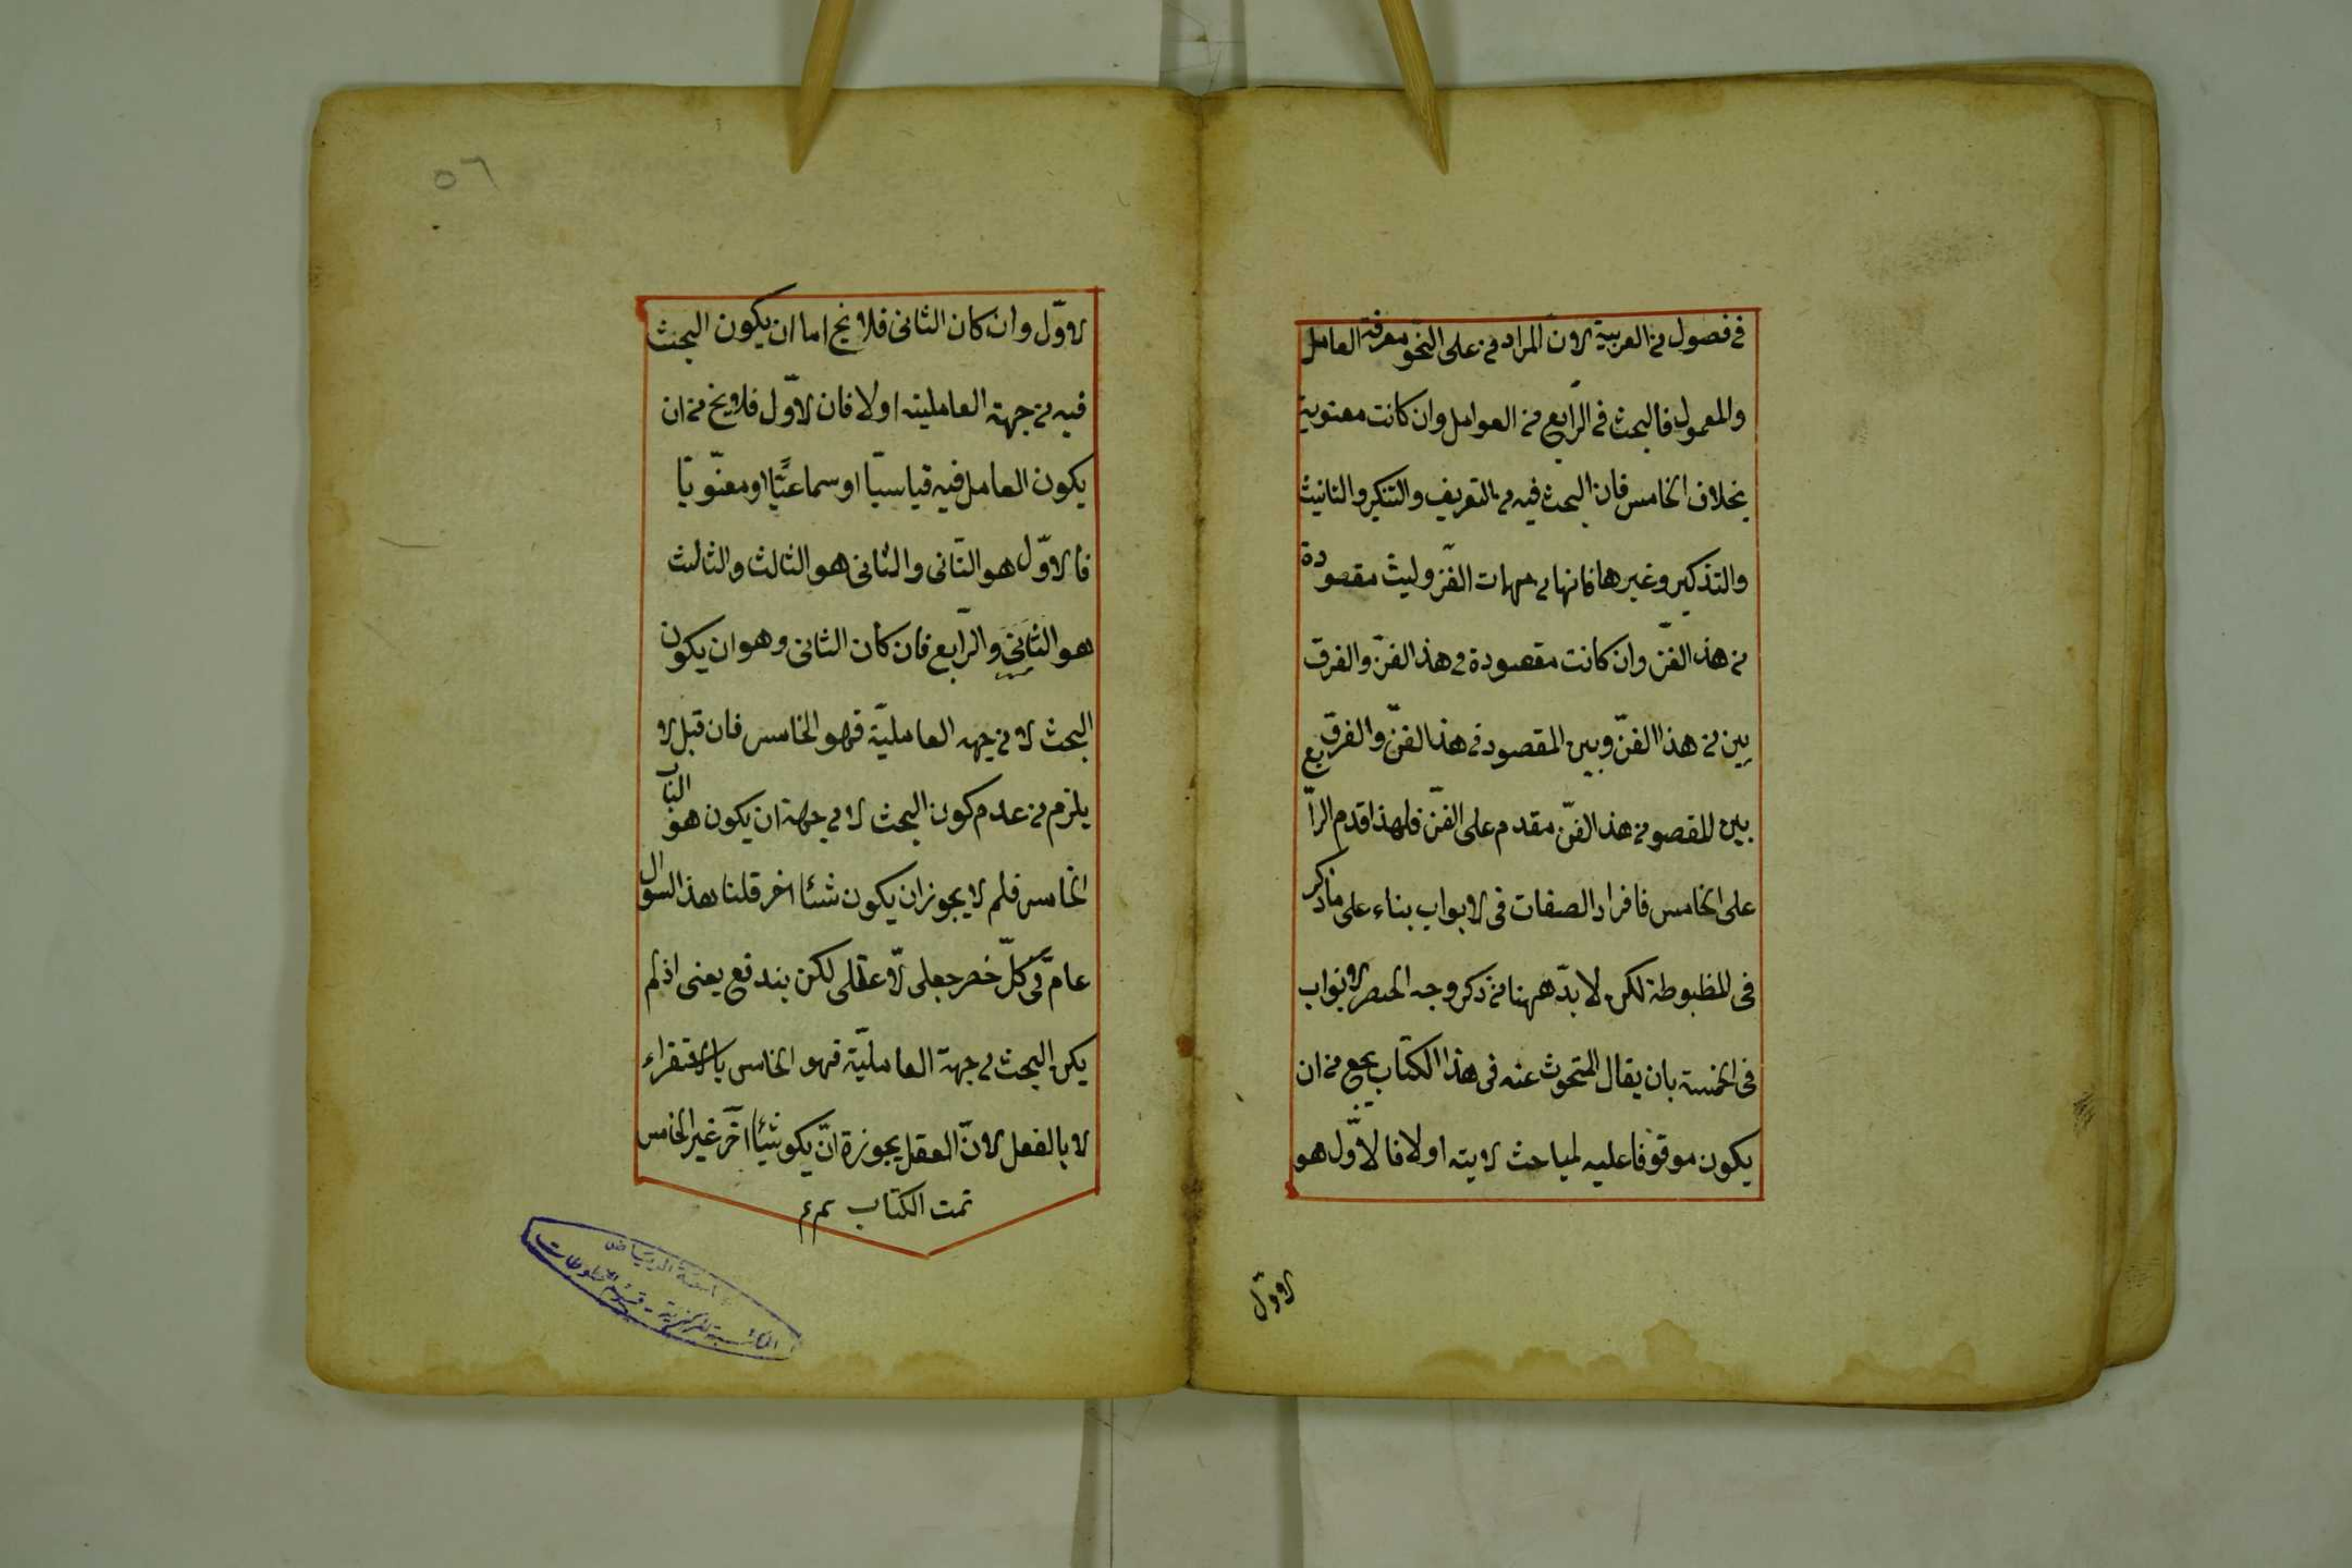 في فصول من العربية لان المراد من على النحو معرفة العامل
والمعمول فالبحث في الرابع من العوامل وان كانت معنوية
بخلاف الخامس فان البحث فيه من التعريف والتنكير والتانيث
والتذكير وغيرها فانها من مهمات الفن وليث مقصودة
من هذ الفن وان كانت مقصودة في هذ الفن والفرق
بين من هذا الفن وبين المقصود في هذا الفن والفرق
بين المقصو من هذ الفن مقدم على الفن فلهذا قدم الرابع
على الخامس فافراد الصفات في الابواب بناء على ما ذكر
في المظبوطة لكن لا بد ههنا من ذكر وجه الحصر الابواب
في الخمسة بان يقال المتحوث عنه في هذا الكتاب يخ من ان
يكون موقوفا عليه لمباحث لايته اولا فالاول هو
الاول
٥٦
الاول وان كان الثاني فلا يخ اما ان يكون البحث
فيه من جهة العاملية اولا فان الاول فلا يخ من ان
يكون العامل فيه قياسيا او سماعيا او معنويا
فالاول هو الثاني والثاني هو الثالث والثالث
هو الثاني والرابع فان كان الثاني وهو ان يكون
البحث لا من جهه العاملية فهو الخامس فان قبل لا
يلزم من عدم كون البحث لا من جهة ان يكون هو الباب
الخامس فلم لا يجوز ان يكون شئا اخر قلنا هذ السوال
عام في كل حصر جعلى لا عقلى لكن يندفع يعنى اذ لم
يكن البحث من جهة العاملية فهو الخامس بالاستقراء
لا بالفعل لان العقل يجوزة ان يكو شيئا اخر غير الخامس
تمت الكتاب م م
جامعة الرياض
المكتبة المركزية - قسم المخطوطات